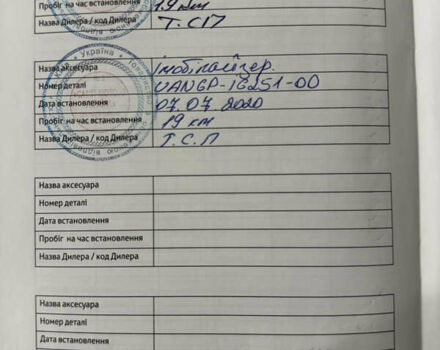 Пробіг на час встановлення 19 км
Назва Дилера / код Дилера Т.С.П
Назва аксесуара Імобілайзер.
Номер деталі UANGP-18251-00
Дата встановлення 07.07.2020
Пробіг на час встановлення 19 км
Назва Дилера / код Дилера Т.С.П
Назва аксесуара
Номер деталі
Дата встановлення
Пробіг на час встановлення
Назва Дилера / код Дилера
Назва аксесуара
Номер деталі
Дата встановлення